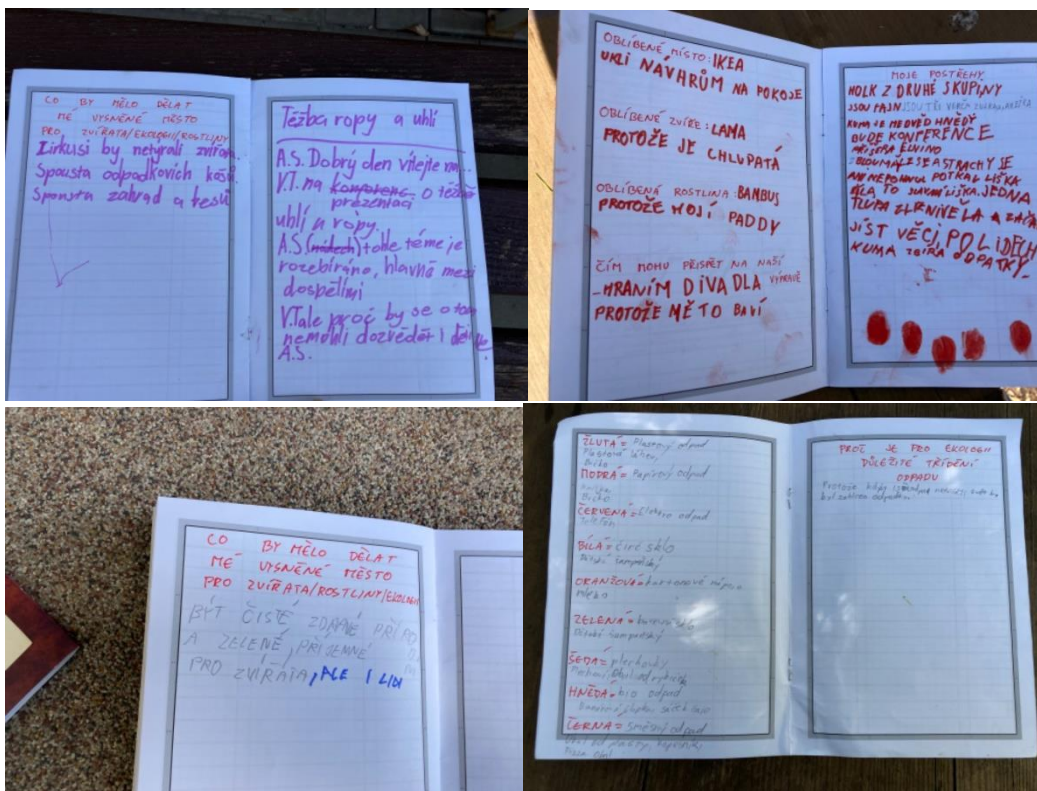 CO BY MĚLO DĚLAT
MÉ VYSNĚNÉ MĚSTO
PRO ZVÍŘATA/EKOLOGII/ROSTLINY
Zirkusi by netýrali zvířata
Spousta odpadkovích košů
Spousta zahrad a lesů
Těžba ropy a uhlí
A.S. Dobrý den vítejte na...
V.T. na konferenc o těžbě
prezentaci
uhlí a ropy.
A.S. tohle téme je
rozebíráno, hlavně mezi
dospělími
V.T ale proč by se o tom
nemohli dozvědět i děti
A.S.
OBLÍBENÉ MÍSTO: IKEA
KRLI NÁVARŮM NA POKOJE
OBLÍBENÉ ZVÍŘE: LAMA
PROTOŽE JE CHLUPATÁ
OBLÍBENÁ ROSTLINA: BAMBUS
PROTOŽE HOJÍ PADDY
ČÍM MOHU PŘISPĚT NA NAŠÍ
VÝPRAVĚ
-HRANÍM DIVADLA
PROTOŽE MĚ TO BAVÍ
MOJE POSTŘEHY
HOLK Z DRUHÉ SKUPINY
JSOU FAJN JSOU TŘI
KUMA JE MEDVĚD HNĚDÝ
BUDE KONFERENCE
PŘÍŠERA
SE A STRACHY SE
ANI NEPOHNUL POTKAL LIŠKA
BÍLÁ TO LIŠKA. JEDNA
TLUPA ZLENIVĚLA A ZAČA
JÍST VĚCI, PO LIDECH
KUMA ZBÍRA ODPATKY-
CO BY MĚLO DĚLAT
MÉ VYSNĚNÉ MĚSTO
PRO ZVÍŘATA/ROSTLINY/EKOLOGII
BÝT ČISTÉ ZDRAVÉ PŘÍRO
A ZELENÉ, PŘÍJEMNÉ
PRO ZVÍŘATA, ALE I LIDI
ŽLUTÁ = Plastový odpad
Plastová láhev,
MODRÁ = Papírový odpad
ČERVENÁ = Elektro odpad
telefon
BÍLÁ = čiré sklo
Dětský šampaňský
ORANŽOVÁ = kartonové nápoje
mleko
ZELENÁ = barevné sklo
Dětské šampaňský
ŠEDÁ = plechovky
HNĚDÁ = bio odpad
ČERNÁ = směsný odpad
PROČ JE PRO EKOLOGII
DŮLEŽITÉ TŘÍDĚNÍ
ODPADU
Protože kdyby